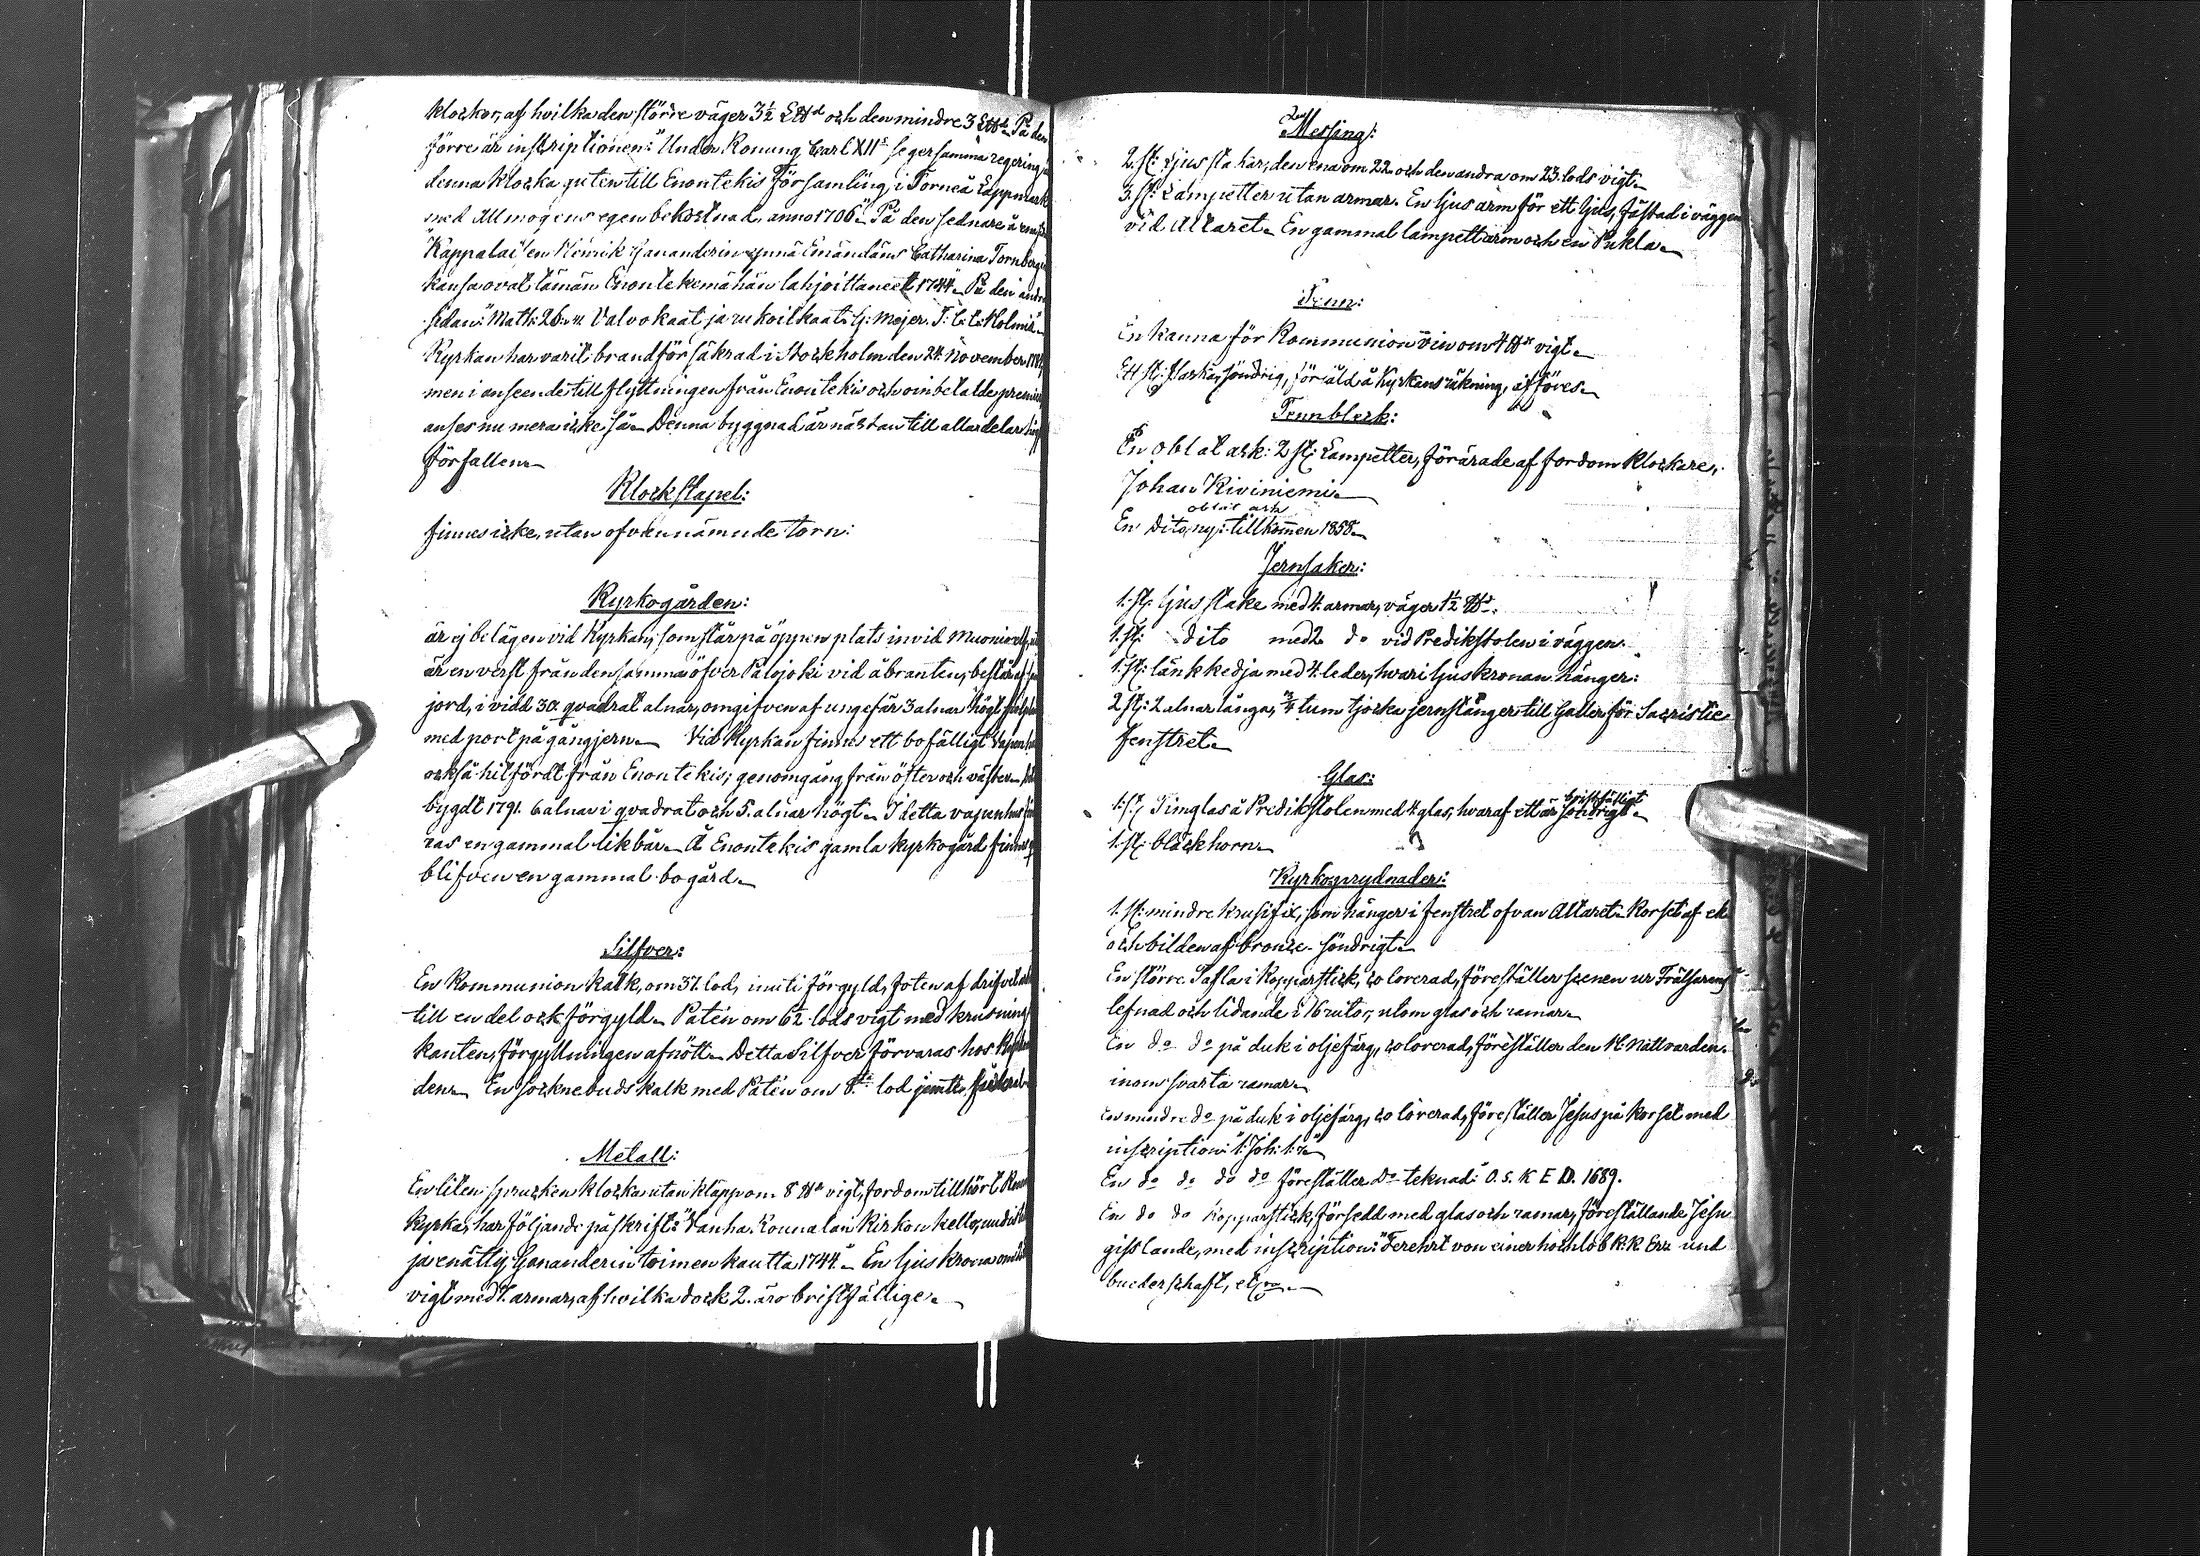 klockor, af hvilka den större väger 3½ L℔d och den mindre 3 L℔d. På den
förre är inskriptionen: "Under Konung Carl XIIs segersamma regering
denna klocka guten till Enontekis Församling i Torneå Lappmark
med Allmogens egen bekostnad, anno 1706." På den sednare å ena
"Kappalai'en Henrik Gananderin ynnä Emändäns Catharina Tornberg
kansa ovat tämän Enontekemähän lahjoittaneet 1744." På den andra
sidan: Matth: 26: 41. Valvokaat ja rukoilkaat. G: Mejer. F: C: C: Holmiæ
Kyrkan har varit brandförsäkrad i Stockholm den 24. November
men i anseende till flyttningen från Enontekis och oinbetalde premier
anses nu mera icke så. Denna byggnad är nästan till alla delar
förfallen.
Klockstapel:
finnes icke, utan ofvannämnde torn:
Kyrkogården:
är ej belägen vid Kyrkan, som står på öppen plats invid Muonioelf,
är en verst från densamma öfver Palojoki vid åbranten, består af
jord, i vidd 30 qvadrat alnar, omgifven af ungefär 3 alnar högt
med port på gångjern. Vid Kyrkan finnes ett bofälligt Vapenhus
också hitfördt från Enontekis; genomgång från öster och väster.
bygdt 1791. 6 alnar i qvadrat och 5. alnar högt. I detta vapenhus
ras en gammal likbår. Å Enontekis gamla kyrkogård finnes
blifven en gammal bogård.
Silfver:
En Kommunion Kalk, om 37. lod, inuti förgyld, foten af drifvet
till en del ock förgyld. Patén om 6½ lods vigt med krusning
kanten, förgyllningen afnött. Detta Silfver förvaras hos
den. En Socknebuds kalk med Patén om lod jemte foderal
Metall:
En liten sprucken klocka utan kläpp om 8 ℔ vigt, fordom tillhört
kyrka, har följande påskrift: "Vanha Rounalan Kirkon kello, uudistettu
ja enätty Gananderin toimen kautta 1744." En ljuskrona om
vigt med 8. armar, af hvilka dock 2. äro bristfällige.
Messing:
2. st: Ljusstakar, den ena om 22. och den andra om 23. lods vigt.
3. st: Lampetter utan armar. En ljusarm för ett ljus, fästad i väggen
vid Altaret. En gammal lampettarm och en Pukla.
Tenn:
En kanna för Kommunion vin om 4 ℔r vigt.
Ett st: flaska, söndrig, försåld å Kyrkans räkning, afföres.
Tennbleck:
En oblatask: 2 st: Lampetter, förärade af fordom klockare,
Johan Kiviniemi.
oblat ask
En Dito, ny: tillkommen 1858.
Jernsaker:
1. st: ljusstake med 4. armar, väger 1½ ℔r.
1. st: Dito med 2 do vid Predikstolen i väggen.
1. st: länkkedja med 4. leder, hvari ljuskronan hänger:
2 st: 2 alnar långa, ¾ tum tjocka jernstänger till Galler för Sacristie
fenstret.
Glas:
1. st: Timglas å Predikstolen med 4 glas, hvaraf ett är bristfälligt söndrigt.
1. st: bläckhorn.
Kyrkoprydnader:
1. st: mindre krusifix, som hänger i fenstret ofvan Altaret. Korset af ek
och bilden af bronze. söndrigt.
En större Tafla i Kopparstick, colorerad, föreställer scenen ur Frälsarens
lefnad och lidande i 16 rutor, utom glas och ramar.
En do do på duk i oljefärg, colorerad, föreställer den H. Nattvarden.
inom svarta ramar.
En mindre do på duk i oljefärg, colorerad, föreställer Jesus på korset med
inscription: "1: Joh: 1: 7."
En do do do do föreställer Do teknad: O. S. K E D. 1689.
En do do Kopparstick, försedd med glas och ramar, föreställande Jesu
gisslande, med inscription: "Ferehrt von einer hochlöb K. K Erz und
buederschaft, etc.